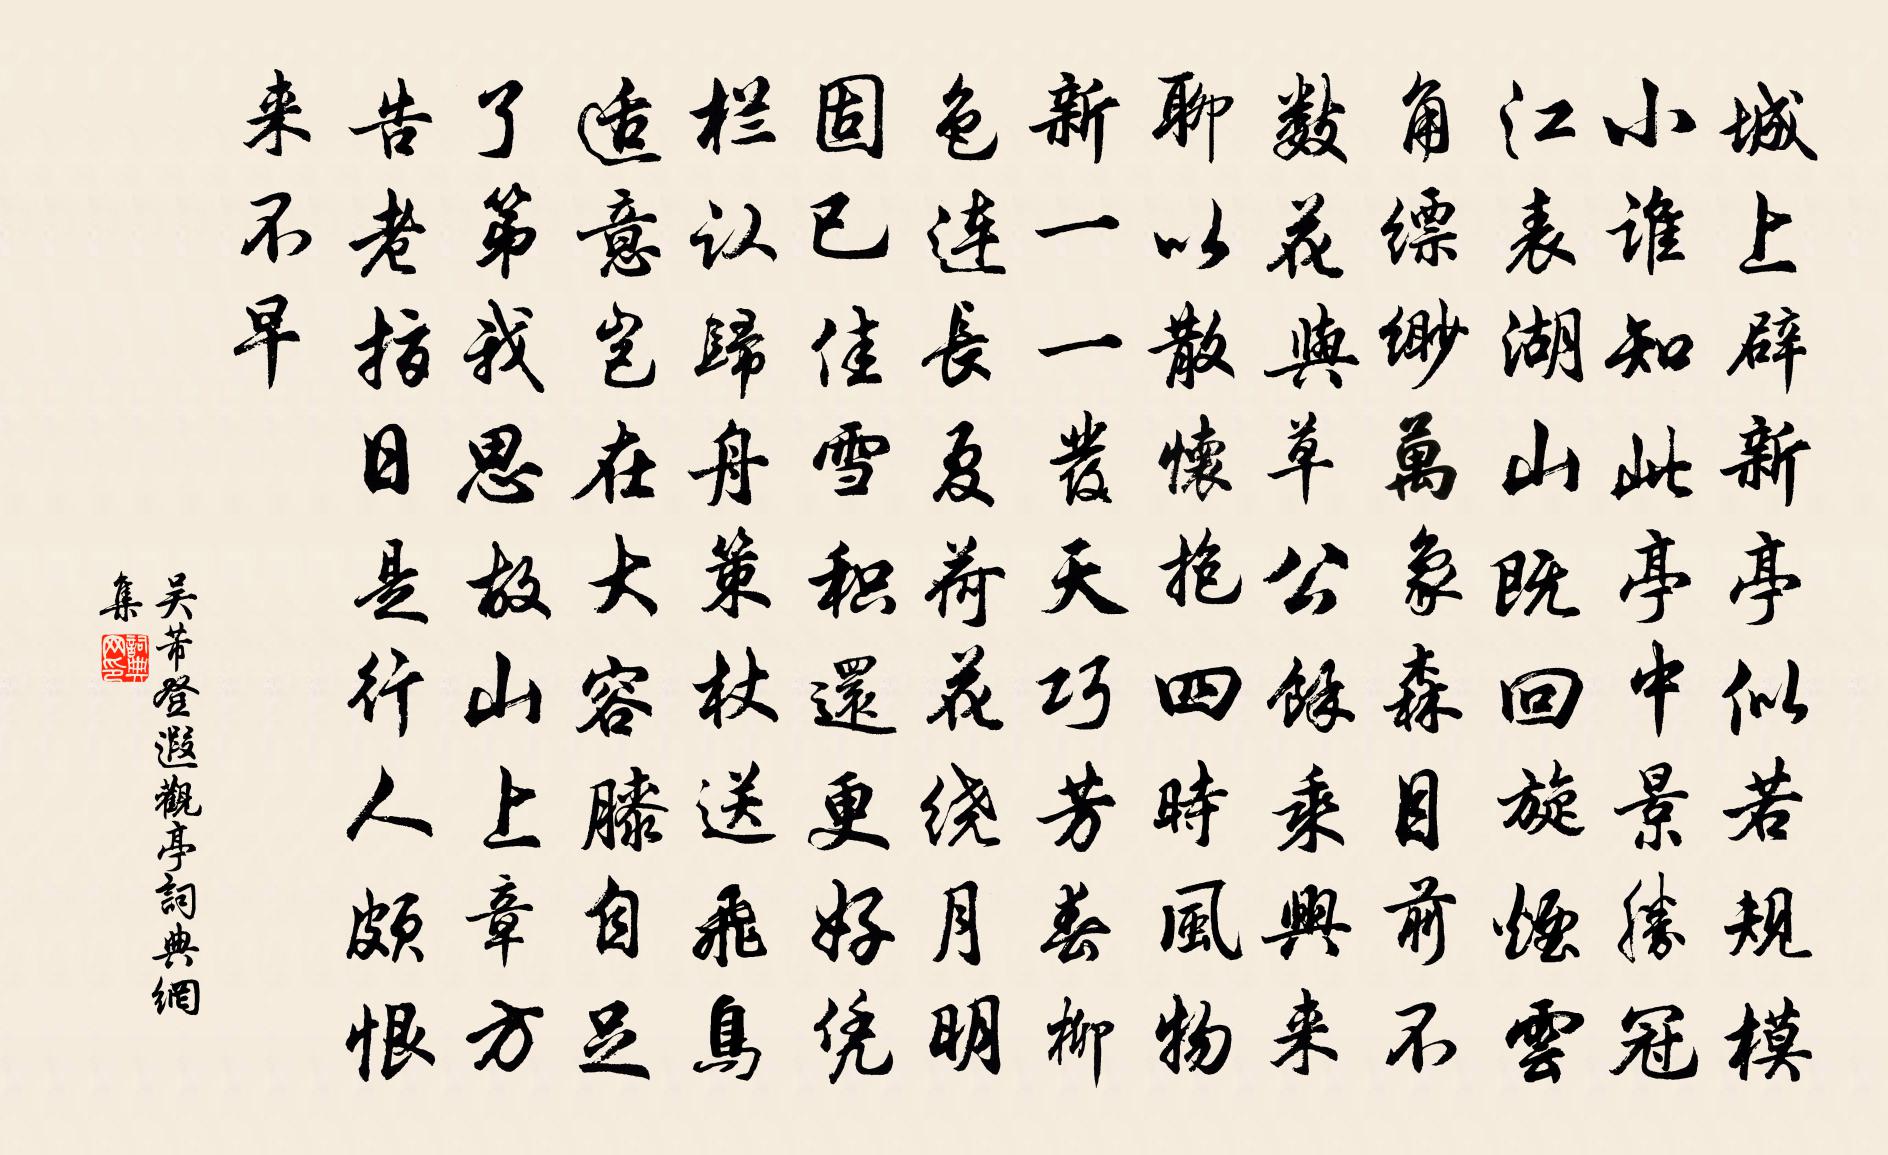 城上辟新亭似若規模
小誰知此亭中景勝冠
江表湖山既回旋煙雲
角縹缈萬象森目前不
數花與草公餘乘興来
聊以散懷抱四時風物
新一一發天巧芳春柳
色連長夏荷花绕月明
固已佳雪积還更好凭
栏认歸舟策杖送飛鳥
适意岂在大容膝自足
了第我思故山上章方
告老指日是行人頗恨
来不早
吴芾登遐觀亭詞典網
集
詞典
网印